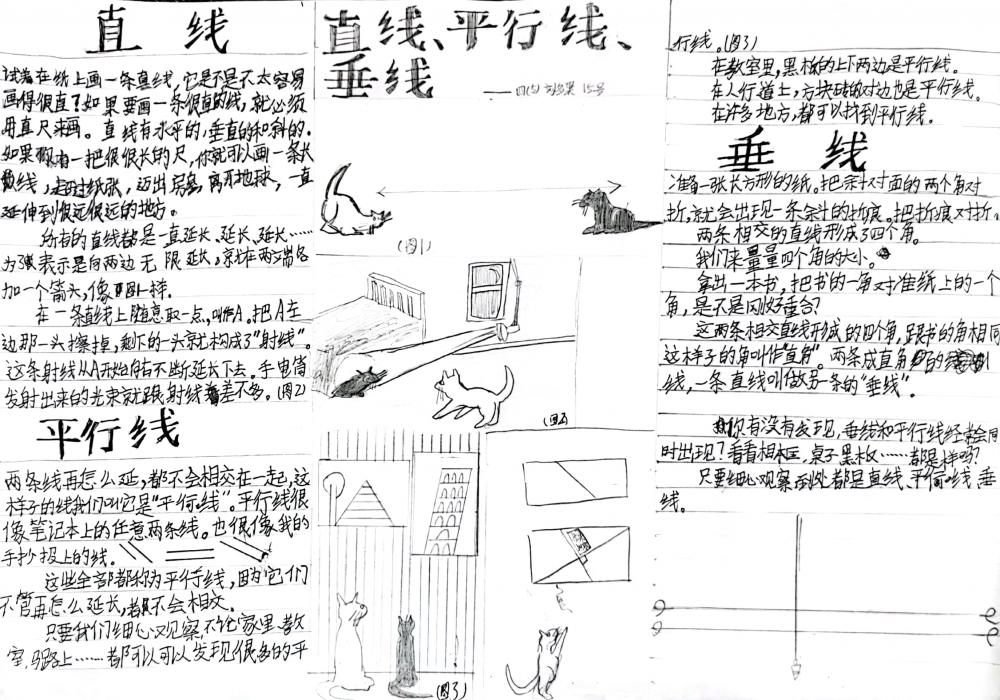 直线
试着在纸上画一条直线，它是不是不太容易
画得很直？如果要画一条很直的线，就必须
用直尺来画。直线有水平的，垂直的和斜的。
如果你有一把很很长的尺，你就可以画一条长
线，超过纸张，迈出房岛，离开地球，一直
延伸到很远很远的地方。
所有的直线都是一直延长、延长、延长……
为了表示是向两边无限延长，就在两端各
加一个箭头，像图1一样。
在一条直线上随意取一点，叫作A。把A左
边那一头擦掉，剩下的一头就构成了"射线"。
这条射线从A开始向右不断延长下去。手电筒
发射出来的光束就跟射线差不多。(图2)
平行线
两条线再怎么延，都不会相交在一起，这
样子的线我们叫它是"平行线"。平行线很
像笔记本上的任意两条线。也很像我的
手抄报上的线。
这些全部都称为平行线，因为它们
不管再怎么延长，都不会相交。
只要我们细心观察，不论家里、教
室，马路上……都可以可以发现很多的平
直线、平行线、
垂线
15号
(图1)
(图2)
(图3)
行线。(图3)
在教室里，黑板的上下两边是平行线。
在人行道上，方块砖的对边也是平行线。
在许多地方，都可以找到平行线。
垂线
准备一张长方形的纸。把斜对面的两个角对
折，就会出现一条斜的折痕。把折痕对折，
两条相交的直线形成了四个角。
我们来量量四个角的大小。
拿出一本书，把书的一角对准纸上的一个
角，是不是刚好重合？
这两条相交直线形成的四个角，跟书的角相同
这样子的角叫作"直角"。两条成直角的
线，一条直线叫做另一条的"垂线"。
你有没有发现，垂线和平行线经常会同
时出现？看看相框，桌子黑板……都是样吗？
只要细心观察到处都是直线、平行线、垂
线。